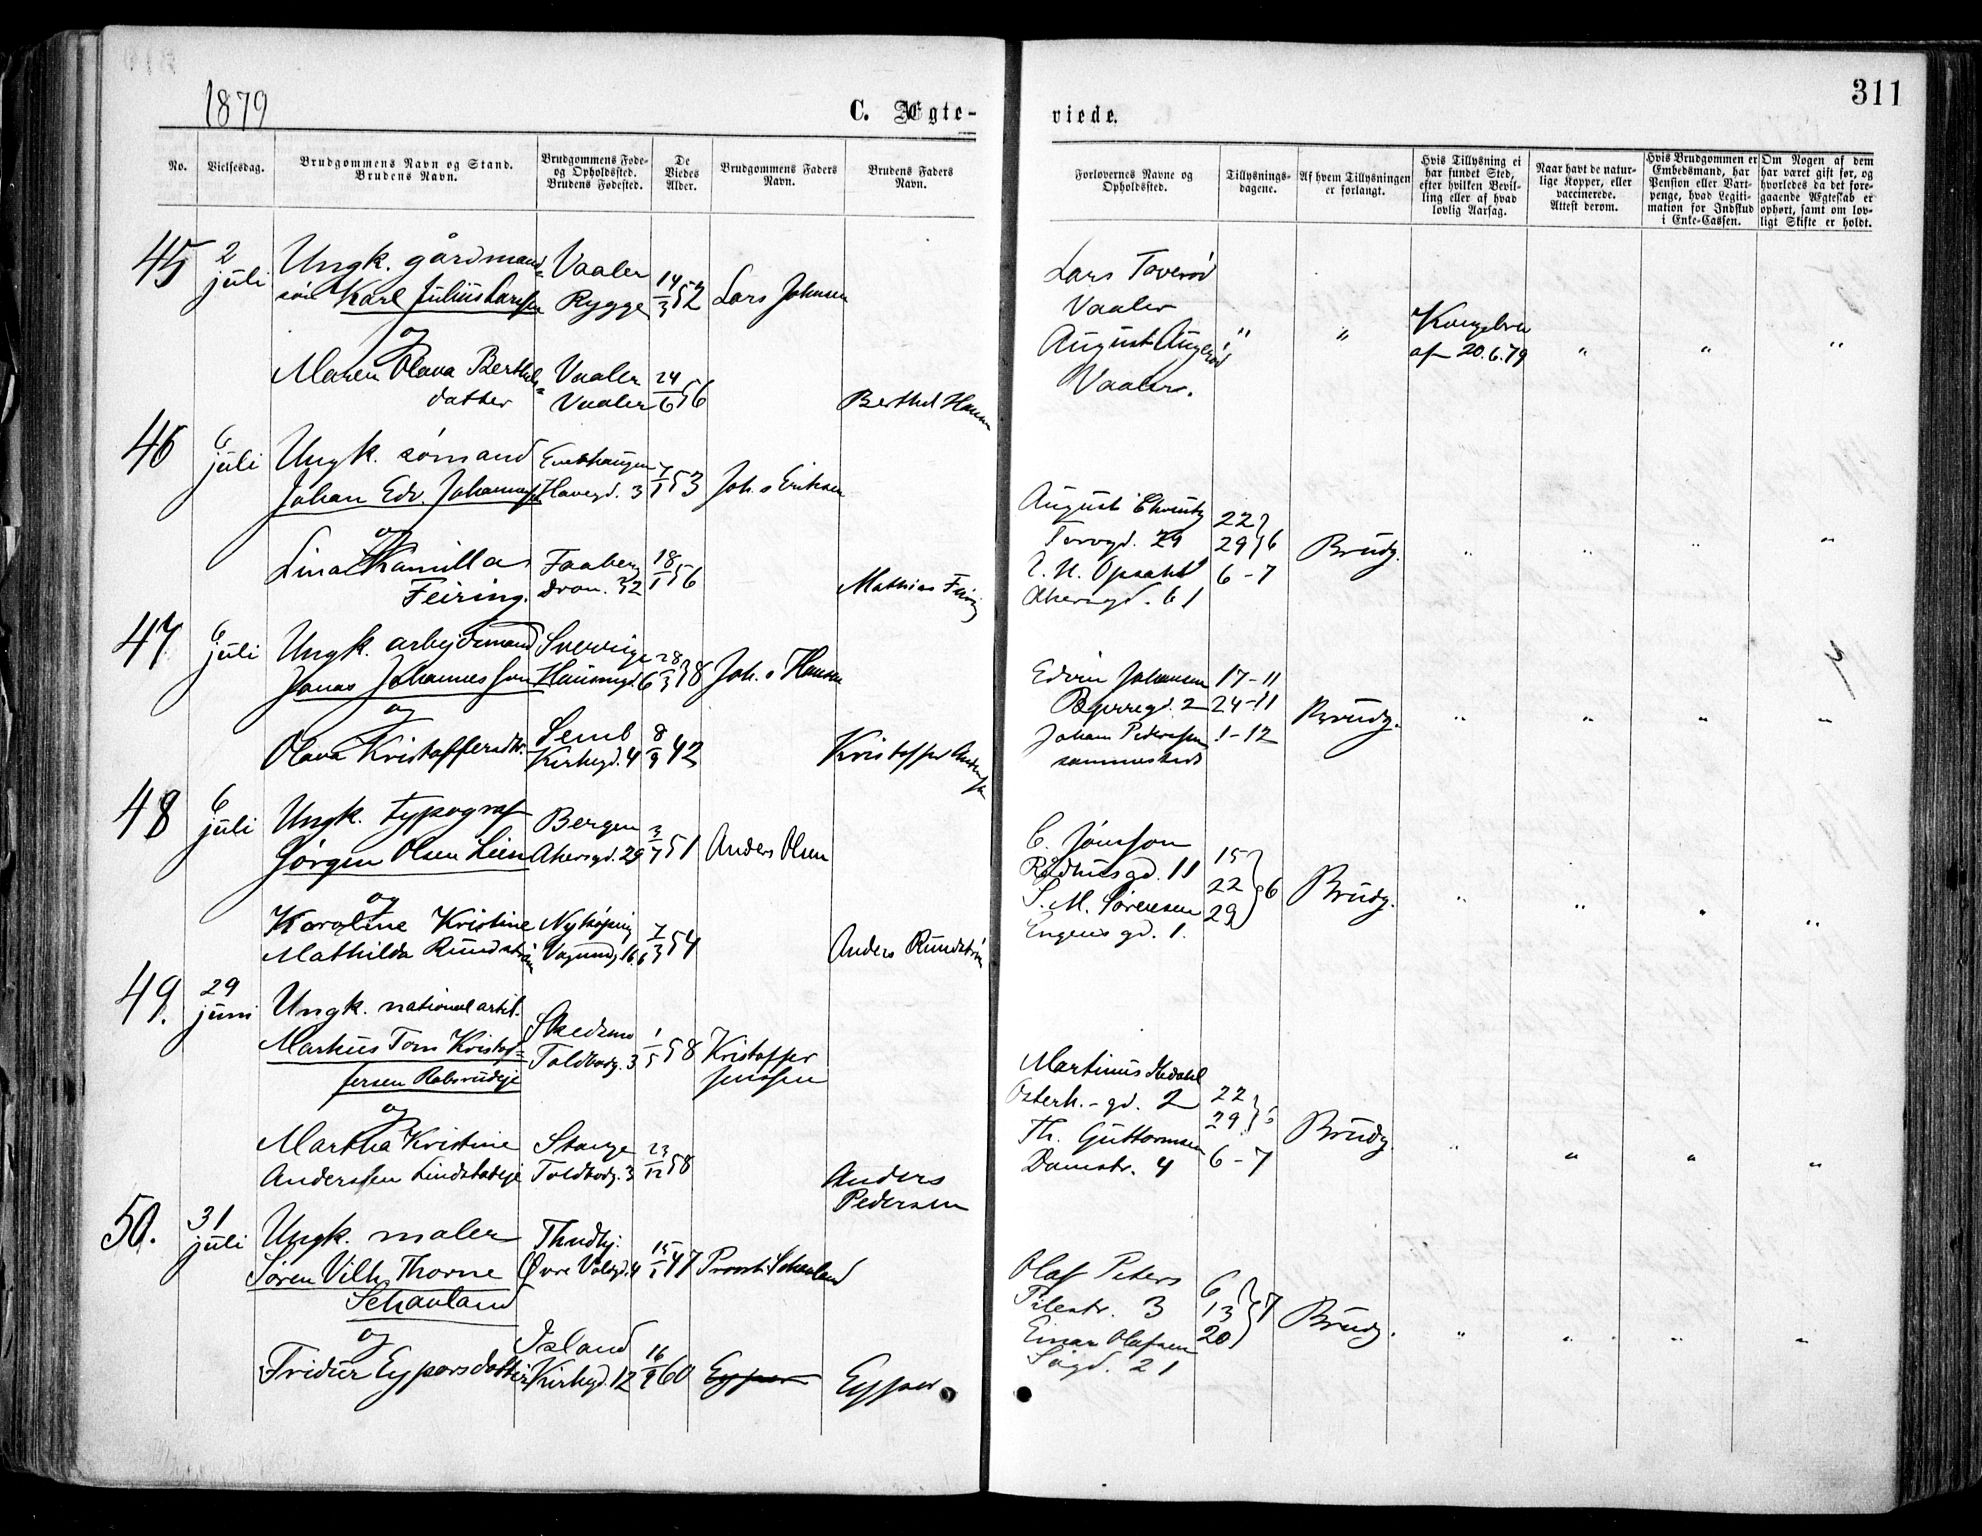 1879
C. Ægte-
viede.
311
No.
Vielsesdag.
Brudgommens Navn og Stand.
Brudens Navn.
Brudgommens Føde-
og Opholdssted.
Brudens Fødested.
De
Viedes
Alder.
Brudgommens Faders
Navn.
Brudens Faders
Navn.
Forlovernes Navne og
Opholdssted.
Tillysnings-
dagene.
Af hvem Tillysningen
er forlangt.
Hvis Tillysning ei
har fundet Sted,
efter hvilken Bevil-
ling eller af hvad
lovlig Aarsag.
Naar havt de natur-
lige Kopper, eller
vaccinerede.
Attest derom.
Hvis Brudgommen er
Embedsmand, har
Pension eller Vart-
penge, hvad Legiti-
mation for Indskud
i Enke-Cassen.
Om Nogen af dem
har været gift før, og
hvorledes da det fore-
gaaende Ægteskab er
ophørt, samt om lov-
ligt Skifte er holdt.
45
2
juli
Ungk. gårdmand-
søn Karl Julius Larssen
og
Maren Olava Berthels-
datter
Vaaler
Rygge
Vaaler
Vaaler
14/3 52
24/6 56
Lars Johnsen
Berthel Hansen
Lars Taverød
Vaaler
August Augerød
Vaaler.
" "
Kongebrev
af 20.6.79
" " "
46
6
juli
Ungk. sømand
Johan Edv. Johannessen
og
Lina Kamilla
Feiring.
Havegd. 3
Faaberg
Dron. 32
7/1 53
18/1 56
Joh.s Eriksen
Mathias Feiring
August
Torvgd. 29
Opsahl
Akersgd. 61
22
29 } 6
6-7
Brudg.
" " " "
47
6
juli
Ungk. arbejdsmand
Jonas Johannesson
og
Olava Kristoffersdtr.
Sverrige
Hausmgd. 6
Semb
Kirkegd. 4
28/3 38
8/9 42
Joh.s Hansen
Kristoffer Anderssen
Edvin Johansen
Bjerregd. 2
Johan Pederssen
sammesteds
17-11
24-11
1-12
Brudg.
" " " "
48
6
juli
Ungk. typograf
Jørgen Olsen Lien
og
Karoline Kristine
Mathilda Rundström
Bergen
Akersgd. 29
Nykøping
16
3/7 51
7/3 54
Anders Olsen
Anders Rundström
C. Jönsson
Rådhusgd. 11
S. M. Sørensen
Engens gd. 1.
15
22 } 6
29
Brudg.
" " " "
49.
29
juni
Ungk. nationalartil.
Markus Tom Kristof-
fersen Rabsrudeje
og
Martha Kristine
Anderssen Lindstadeje
Skedsmo
Toldbodg. 3
Stange
Toldbodg. 3
1/5 58
23/12 58
Kristoffer
Jenssen
Anders
Pedersen
Martinus
Osterh.-gd. 2
Th. Guttormsen
Damstr. 4
22
29 } 6
6-7
Brudg.
" " " "
50.
31
juli
Ungk. maler
Søren Vilh. Thorne
Schauland
og
Fridur Eyporsdottir
Thndhj.
Øvre Voldgd. 4
Island
Kirkegd. 12
15/1 47
16/9 60
Provst. Schauland
Eypor
Eypor
Olaf Peters
Pilestr. 3
Einar Olafsen
Søgd. 21
6
13 } 7
20
Brudg.
" " " "